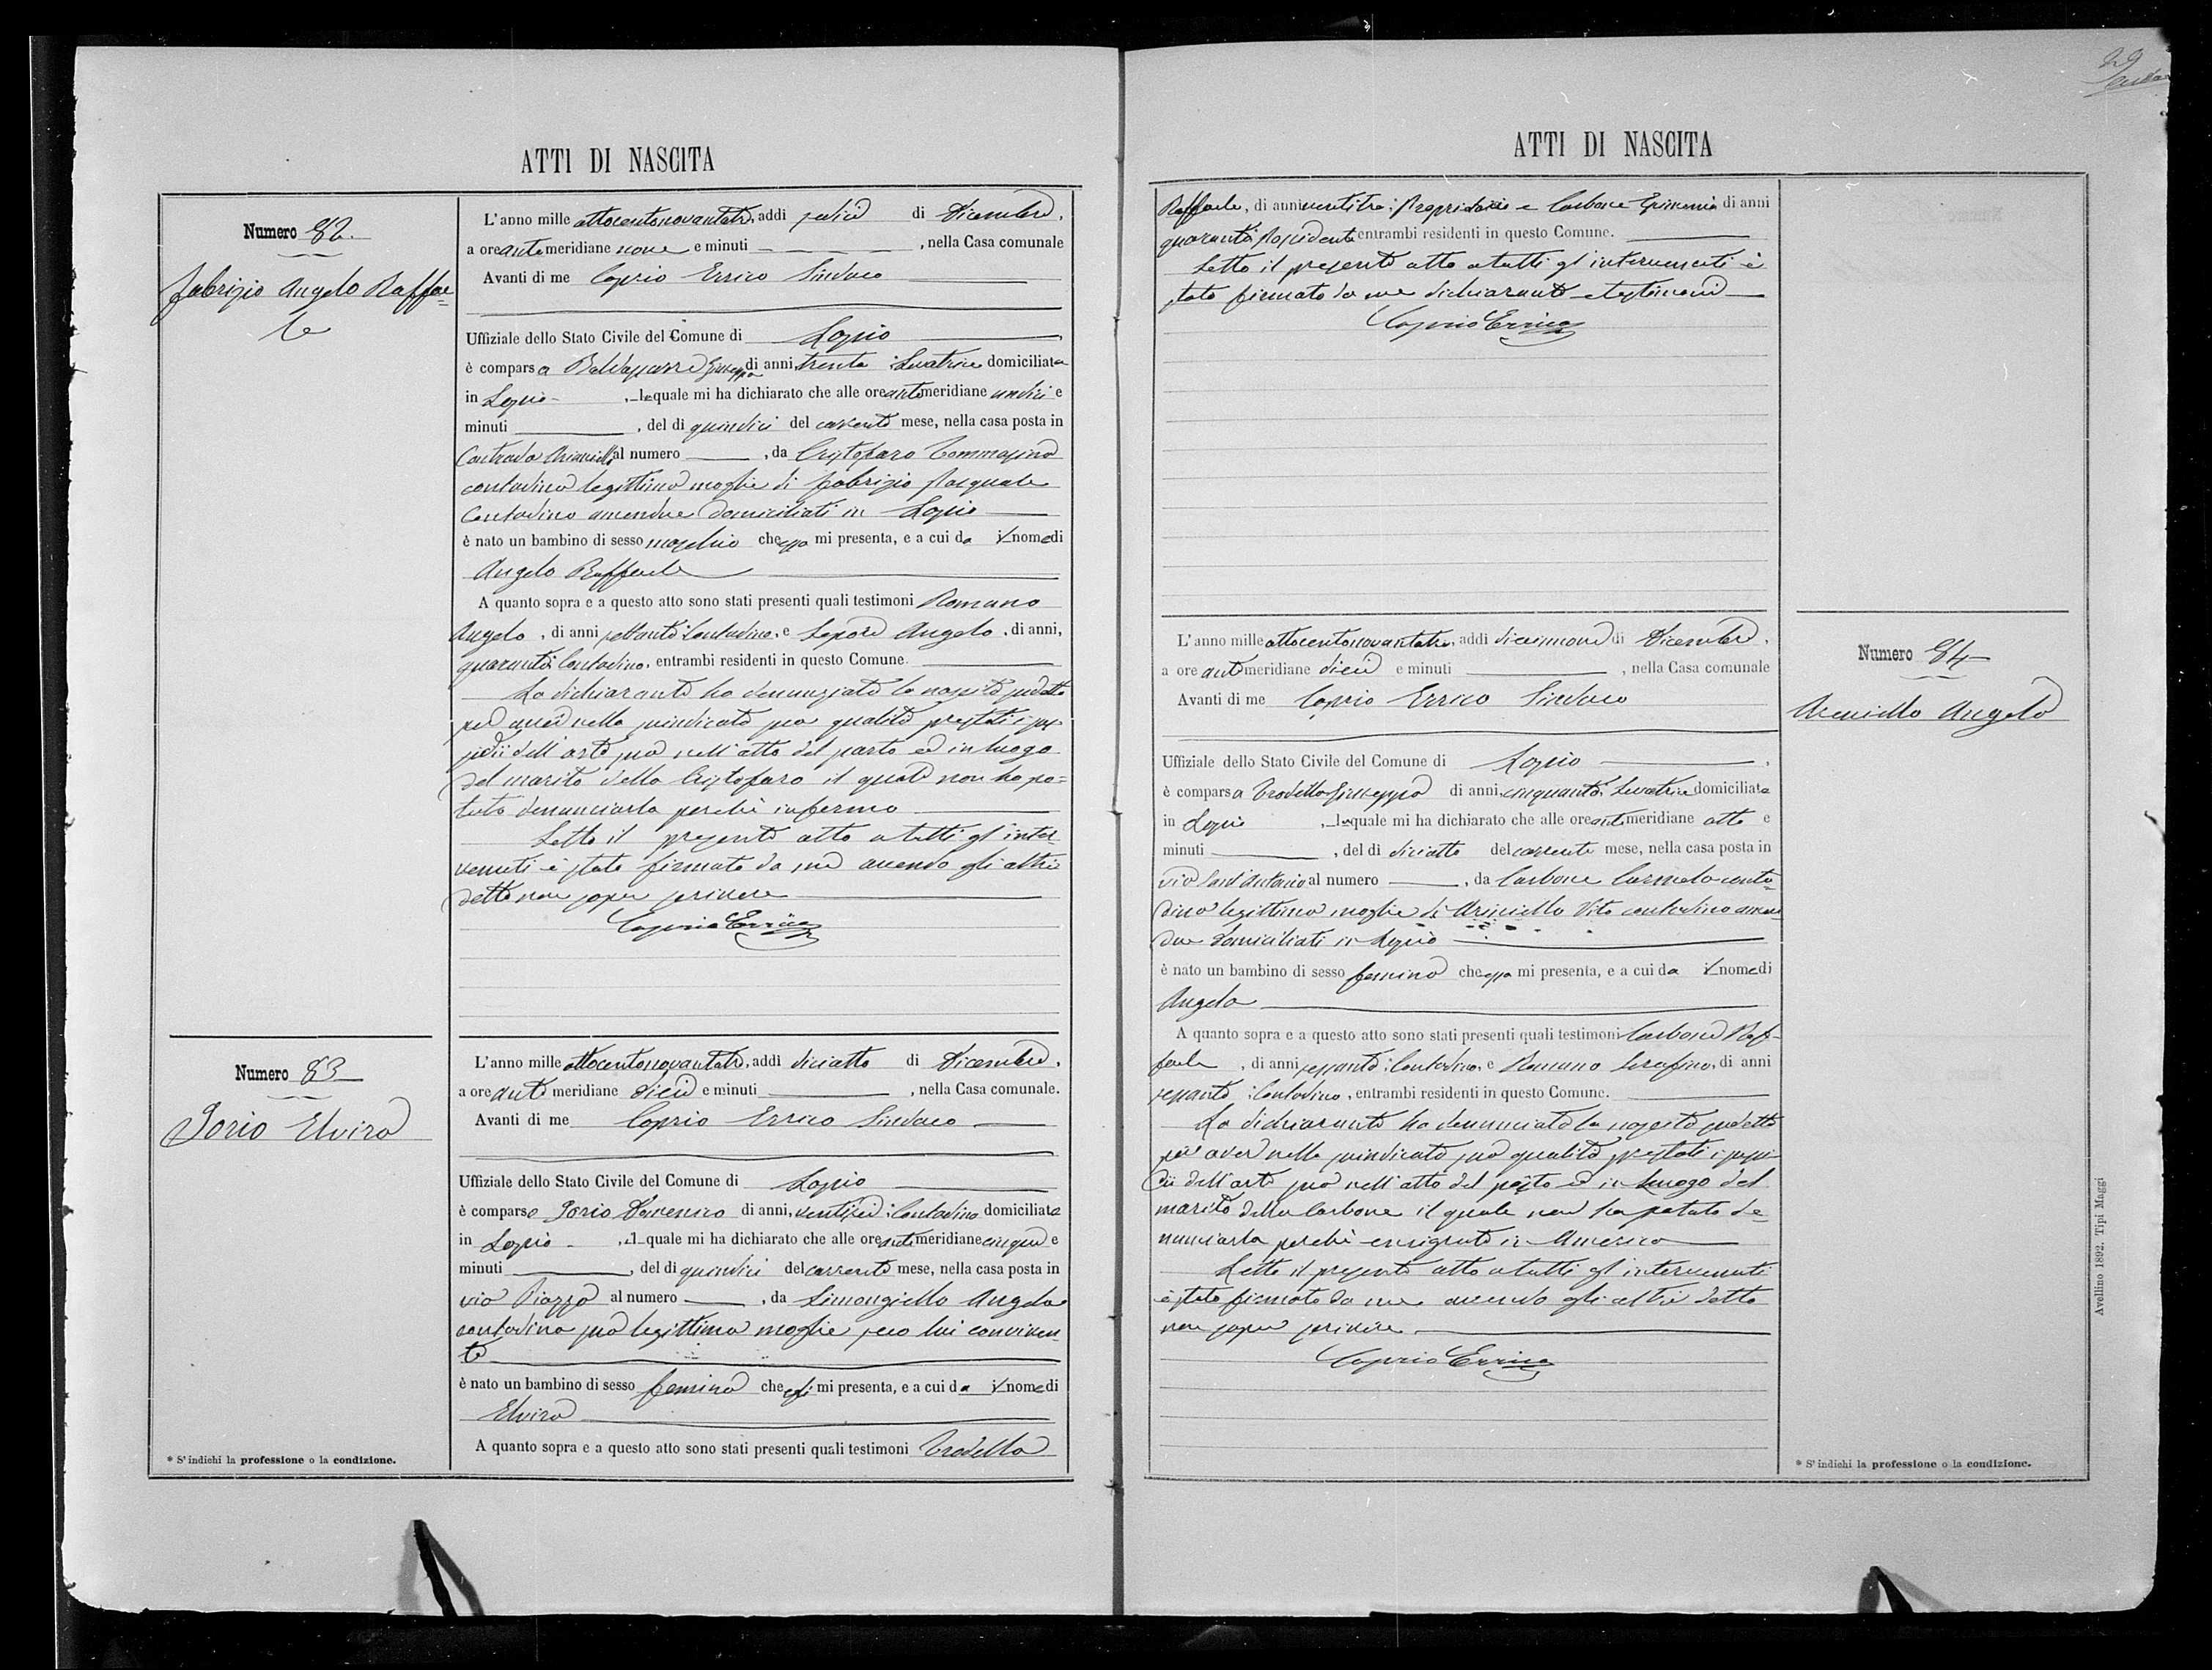 ATTI DI NASCITA
Numero 82.
Fabrizio Angelo Raffae=
le
L'anno mille ottocentonovantatre, addi sedici di Dicembre,
a ore antimeridiane nove e minuti, nella Casa comunale
Avanti di me Caprio Errico Sindaco
Uffiziale dello Stato Civile del Comune di Lapio
è comparsa Baldassarre Giuseppa di anni trenta Levatrice domiciliata
in Lapio, la quale mi ha dichiarato che alle ore antimeridiane undici e
minuti, del dì quindici del corrente mese, nella casa posta in
Contrada Arianiello al numero, da Cristofaro Tommasina
contadina legittima moglie di Fabrizio Pasquale
Contadino amendue domiciliati in Lapio
è nato un bambino di sesso maschio che essa mi presenta, e a cui da il nome di
Angelo Raffaele
A quanto sopra e a questo atto sono stati presenti quali testimoni Romano
Angelo, di anni settanta Contadino, e Lepore Angelo, di anni,
quaranta Contadino, entrambi residenti in questo Comune.
La dichiarante ha denunziato la nascita sudetta
per aver nella suindicata sua qualità prestati i sus=
sidii dell'arte sua nell'atto del parto ed in luogo
del marito della Cristofaro il quale non ha po=
tuto denunciarla perchè infermo
Letto il presente atto a tutti gl'inter=
venuti è stato firmato da me avendo gli altri
detto non saper scrivere
Caprio Errico
Numero 83
Iorio Elvira
L'anno mille ottocentonovantatre, addi diciotto di Dicembre,
a ore anti meridiane dieci e minuti, nella Casa comunale.
Avanti di me Caprio Errico Sindaco
Uffiziale dello Stato Civile del Comune di Lapio
è comparso Iorio Domenico di anni, ventisei Contadino domiciliato
in Lapio, il quale mi ha dichiarato che alle ore antimeridiane cinque e
minuti, del dì quindici del corrente mese, nella casa posta in
via Piazza al numero, da Simongiello Angela
contadina sua legittima moglie seco lui conviven=
te
è nato un bambino di sesso femina che egli mi presenta, e a cui da il nome di
Elvira
A quanto sopra e a questo atto sono stati presenti quali testimoni Trodella
* S'indichi la professione o la condizione.
ATTI DI NASCITA
Raffaele, di anni ventitre Proprietario e Carbone Epimenia di anni
quaranta Possidente entrambi residenti in questo Comune.
Letto il presente atto a tutti gl'intervenuti è
stato firmato da me dichiarante e testimoni
Caprio Errico
L'anno mille ottocentonovantatre, addi diciannove di Dicembre,
a ore anti meridiane dieci e minuti, nella Casa comunale
Avanti di me Caprio Errico Sindaco
Uffiziale dello Stato Civile del Comune di Lapio
è comparsa Trodella Giuseppa di anni, cinquanta Levatrice domiciliata
in Lapio, la quale mi ha dichiarato che alle ore antimeridiane otto e
minuti, del dì diciotto del corrente mese, nella casa posta in
via Sant'Antonio al numero, da Carbone Carmela conta=
dina legittima moglie di Arminiello Vito contadino amen
due domiciliati in Lapio
è nato un bambino di sesso femina che essa mi presenta, e a cui da il nome di
Angela
A quanto sopra e a questo atto sono stati presenti quali testimoni Carbone Raf=
faele, di anni sessanta Contadino, e Romano Serafino, di anni
sessanta Contadino, entrambi residenti in questo Comune.
La dichiarante ha denunciato la nascita sudetta
per aver nella suindicata sua qualità prestati i sussi=
dii dell'arte sua nell'atto del parto ed in luogo del
marito della Carbone il quale non ha potuto de=
nunciarla perchè emigrato in America
Letto il presente atto a tutti gl'intervenuti
è stato firmato da me avendo gli altri detto
non saper scrivere
Caprio Errico
Numero 84
Angela
* S'indichi la professione o la condizione.
Avellino 1892. Tipi Maggi